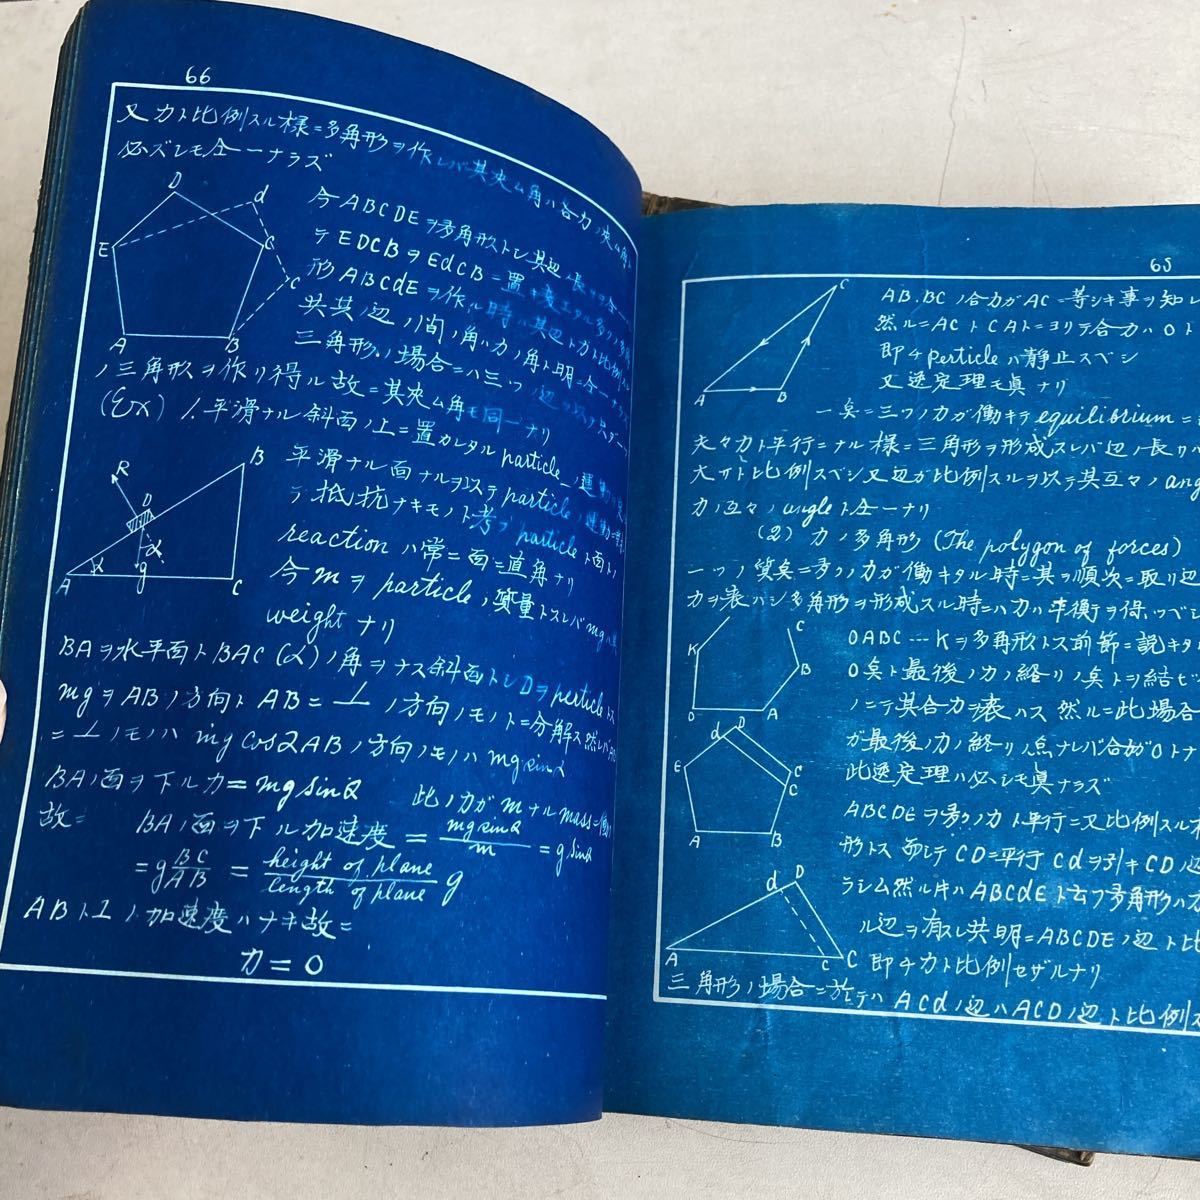 65
AB.BC ノ合力ガ AC ニ等シキ事ヲ知レ
然ルニ AC ト CA トニヨリテ合力ハ 0 ト
即チ perticle ハ静止スベシ
又逆定理モ眞ナリ
一点ニ三ツノ力ガ働キテ equilibrium ニ
夫々力ト平行ニナル様ニ三角形ヲ形成スレバ辺ノ長サハ
大サト比例スベシ又辺ガ比例スルヲ以テ其互々ノ ang
力ノ互々ノ angle ト全一ナリ
(2) 力ノ多角形 (The polygon of forces)
一ツノ質点ニ多クノ力ガ働キタル時ニ其ヲ順次ニ取リ辺
力ヲ表ハシ多角形ヲ形成スル時ニハ力ハ平衡ヲ保ツベシ
OABC ... K ヲ多角形トス前節ニ説キタ
O点ト最後ノ力ノ終リノ点トヲ結ビ
ノニテ其合力ヲ表ハス 然ルニ此場合
ガ最後ノ力ノ終リノ点ナレバ合力ガ 0 トナ
此逆定理ハ必ズシモ眞ナラズ
ABCDE ヲ多クノ力ト平行ニ又比例スル
形トス 而シテ CD ニ平行 Cd ヲ引キ CD 辺
ラシム然ル片ハ ABCdE ト云フ多角形ハ力
ル辺ヲ有スレ共明ニ ABCDE ノ辺ト比
即チ力ト比例セザルナリ
三角形ノ場合ニ於テハ ACd ノ辺ハ ACD ノ辺ト比例ス
A
B
C
K
O
A
B
C
d
D
E
C
C
A
B
d
D
A
C
C
66
又力ト比例スル様ニ多角形ヲ作レバ其夾ム角ハ各力ノ夾ム角ト
必ズシモ全一ナラズ
今 ABCDE ヲ多角形トシ其辺ノ長サヲ
テ EDCB ヲ EdCB ニ置キ変エタル多
形 ABCdE ヲ作ル時ハ其辺ト力ト比例
共其ノ辺ノ間ノ角ハ力ノ角ト明ニ全一ナラ
三角形ノ場合ニハ三ツノ辺
ノ三角形ヲ作リ得ル故ニ其夾ム角モ同一ナリ
(Ex) 1. 平滑ナル斜面ノ上ニ置カレタル particle ノ運動
平滑ナル面ナルヲ以テ particle ノ運動ニ
テ抵抗ナキモノト考フ particle ト面ト
reaction ハ常ニ面ニ直角ナリ
今 m ヲ particle ノ質量トスレバ mg ハ
weight ナリ
BA ヲ水平面ト BAC (α) ノ角ヲナス斜面トシ D ヲ perticle トス
mg ヲ AB ノ方向ト AB ニ ⊥ ノ方向ノモノトニ分解ス然レバ
= ⊥ ノモノハ mg cosα AB ノ方向ノモノハ mg sinα
BA ノ面ヲ下ル力 = mg sinα 此ノ力ガ m ナル mass ニ働
故ニ BA ノ面ヲ下ル加速度 = mg sinα / m = g sinα
= g BC/AB = height of plane / length of plane g
AB ト⊥ノ加速度ハナキ故ニ
力 = 0
D
d
E
C
C
A
B
R
D
B
α
α
g
A
C